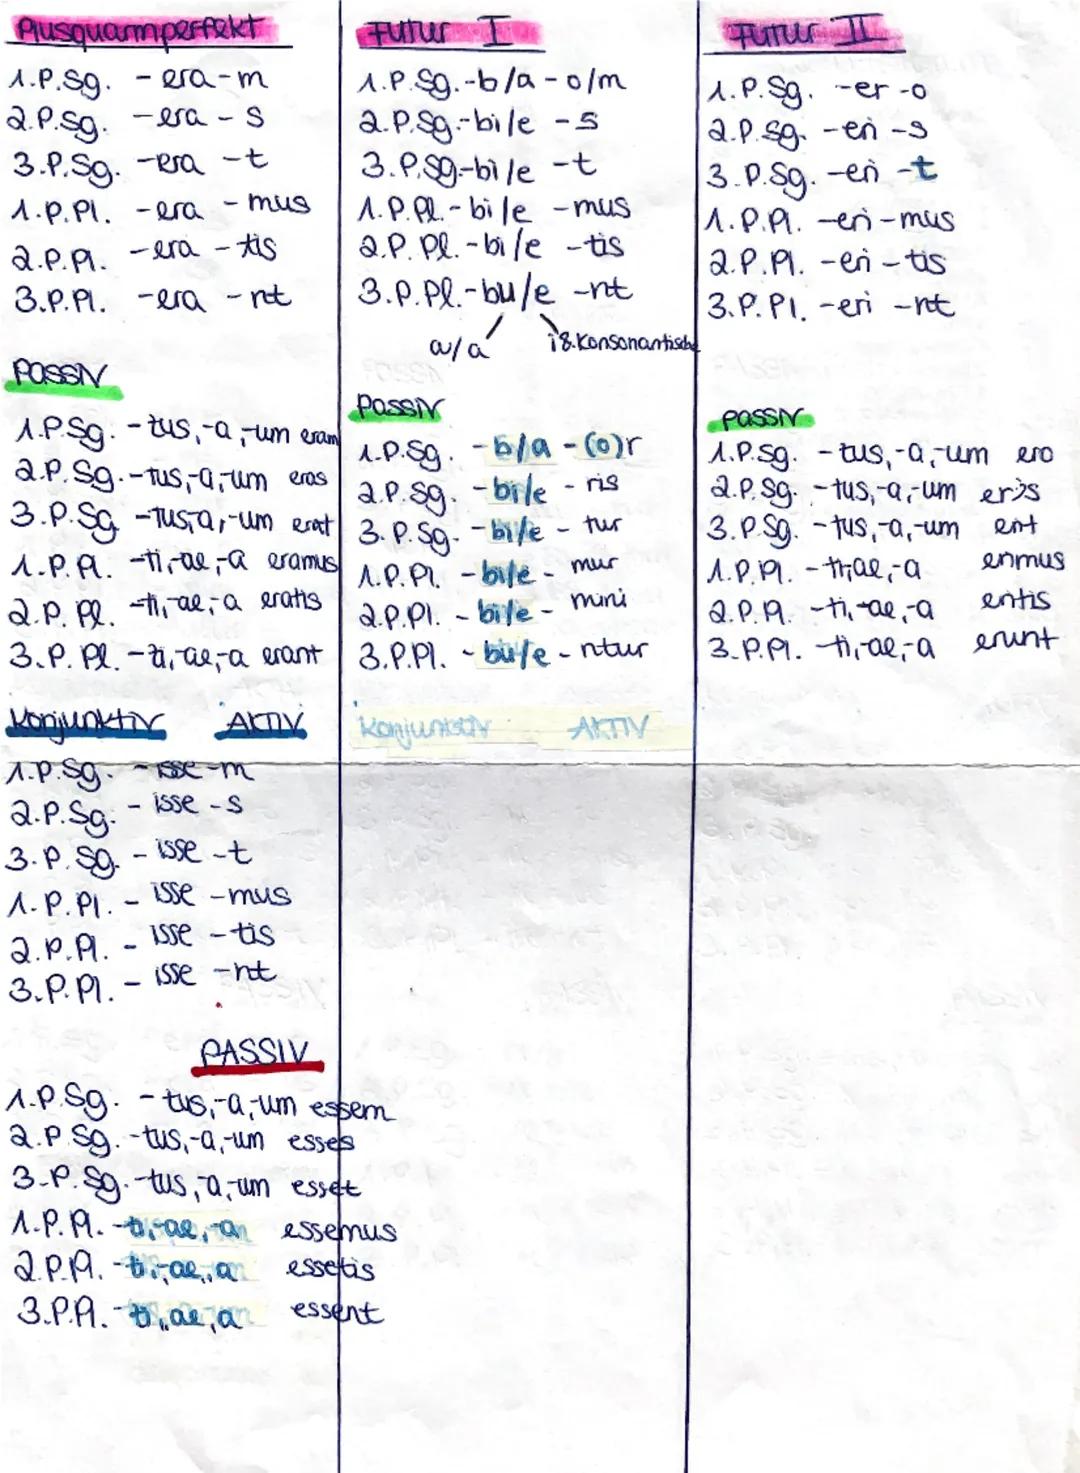 Plusquamperfekt
1.P.Sg. - era - m
2.P.Sg. - era - s
3.P.Sg. - era - t
1.P.Pl. - era - mus
2.P.Pl. - era - tis
3.P.Pl. - era - nt
Passiv
1.P.Sg. - tus,-a,-um eram
2.P.Sg. - tus,-a,-um eras
3.P.Sg - tus,a,-um erat
1.P.Pl. - ti,-ae,-a eramus
2.P.Pl. - ti,-ae,-a eratis
3.P.Pl. - ti,-ae,-a erant
Konjunktiv AKTIV
1.P.Sg. - isse - m
2.P.Sg. - isse - s
3.P.Sg. - isse - t
1.P.Pl. - isse - mus
2.P.Pl. - isse - tis
3.P.Pl. - isse - nt
PASSIV
1.P.Sg. - tus,-a,-um essem
2.P.Sg. - tus,-a,-um esses
3.P.Sg. - tus,-a,-um esset
1.P.Pl. - ti,-ae,-a essemus
2.P.Pl. - ti,-ae,-a essetis
3.P.Pl. - ti,-ae,-a essent
Futur I
1.P.Sg. - b/a - o/m
2.P.Sg. - bi/e - s
3.P.Sg - bi/e - t
1.P.Pl. - bi/e - mus
2.P.Pl. - bi/e - tis
3.P.Pl. - bu/e - nt
Passiv
1.P.Sg. - b/a - (o)r
2.P.Sg. - bi/e - ris
3.P.Sg. - bi/e - tur
1.P.Pl. - bi/e - mur
2.P.Pl. - bi/e - mini
3.P.Pl. - bu/e - ntur
Konjunktiv AKTIV
Futur II
1.P.Sg. - er - o
2.P.Sg. - eri - s
3.P.Sg. - eri - t
1.P.Pl. - eri - mus
2.P.Pl. - eri - tis
3.P.Pl. - eri - nt
Passiv
1.P.Sg. - tus,-a,-um ero
2.P.Sg. - tus,-a,-um eris
3.P.Sg. - tus,-a,-um erit
1.P.Pl. - ti,ae,-a erimus
2.P.Pl. - ti,-ae,-a eritis
3.P.Pl. - ti,-ae,-a erunt